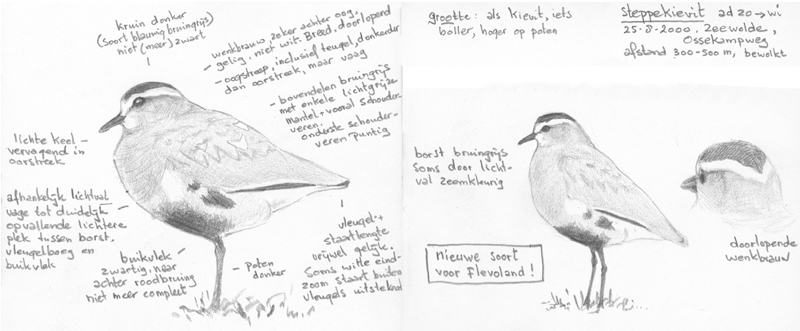 kruin donker
(soort blauwig bruingrijs)
niet (meer) zwart
wenkbrauw, zeker achter oog,
gelig, niet wit. Breed, doorlopend
- oogstreep, inclusief teugel, donkerder
dan oorstreek, maar vaag
- bovendelen bruingrijs
met enkele lichtgrijze
mantel + vooral schouder-
veren.
onderste schouder-
veren puntig
lichte keel -
vervagend in
oorstreek
afhankelijk lichtval
vage tot duidelijk
opvallende lichtere
plek tussen borst,
vleugelboeg en
buikvlek
buikvlek
zwartig, naar
achter roodbruin
niet meer compleet
- Poten
donker
vleugel +
staartlengte
vrijwel gelijk.
Soms witte eind-
zoom staart buiten
vleugels uitstekend
grootte: als kievit, iets
boller, hoger op poten
steppekievit ad zo → wi
25-8-2000, Zeewolde,
Ossekampweg
afstand 300-500 m, bewolkt
borst bruingrijs
soms door licht-
val zeemkleurig
nieuwe soort
voor Flevoland!
doorlopende
wenkbrauw